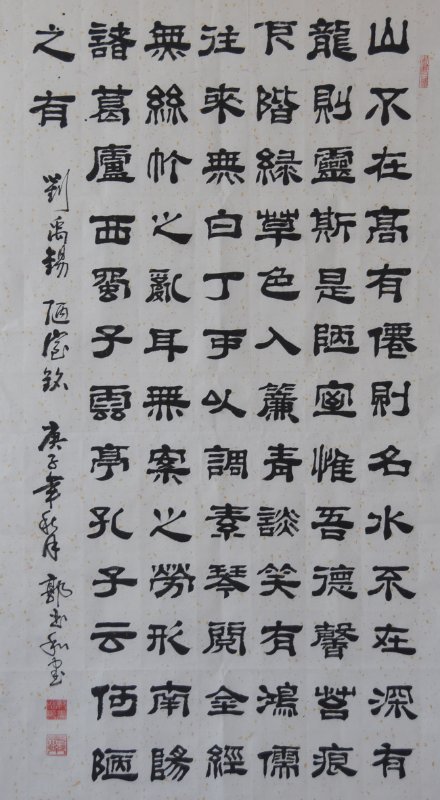 山不在高有僊則名水不在深有
龍則靈斯是陋室惟吾德馨苔痕
下階綠草色入簾青談笑有鴻儒
往來無白丁可以調素琴閱金經
無絲竹之亂耳無案之勞形南陽
諸葛廬西蜀子雲亭孔子云何陋
之有
劉禹錫 陋室銘 庚子年秋月 郭 和書